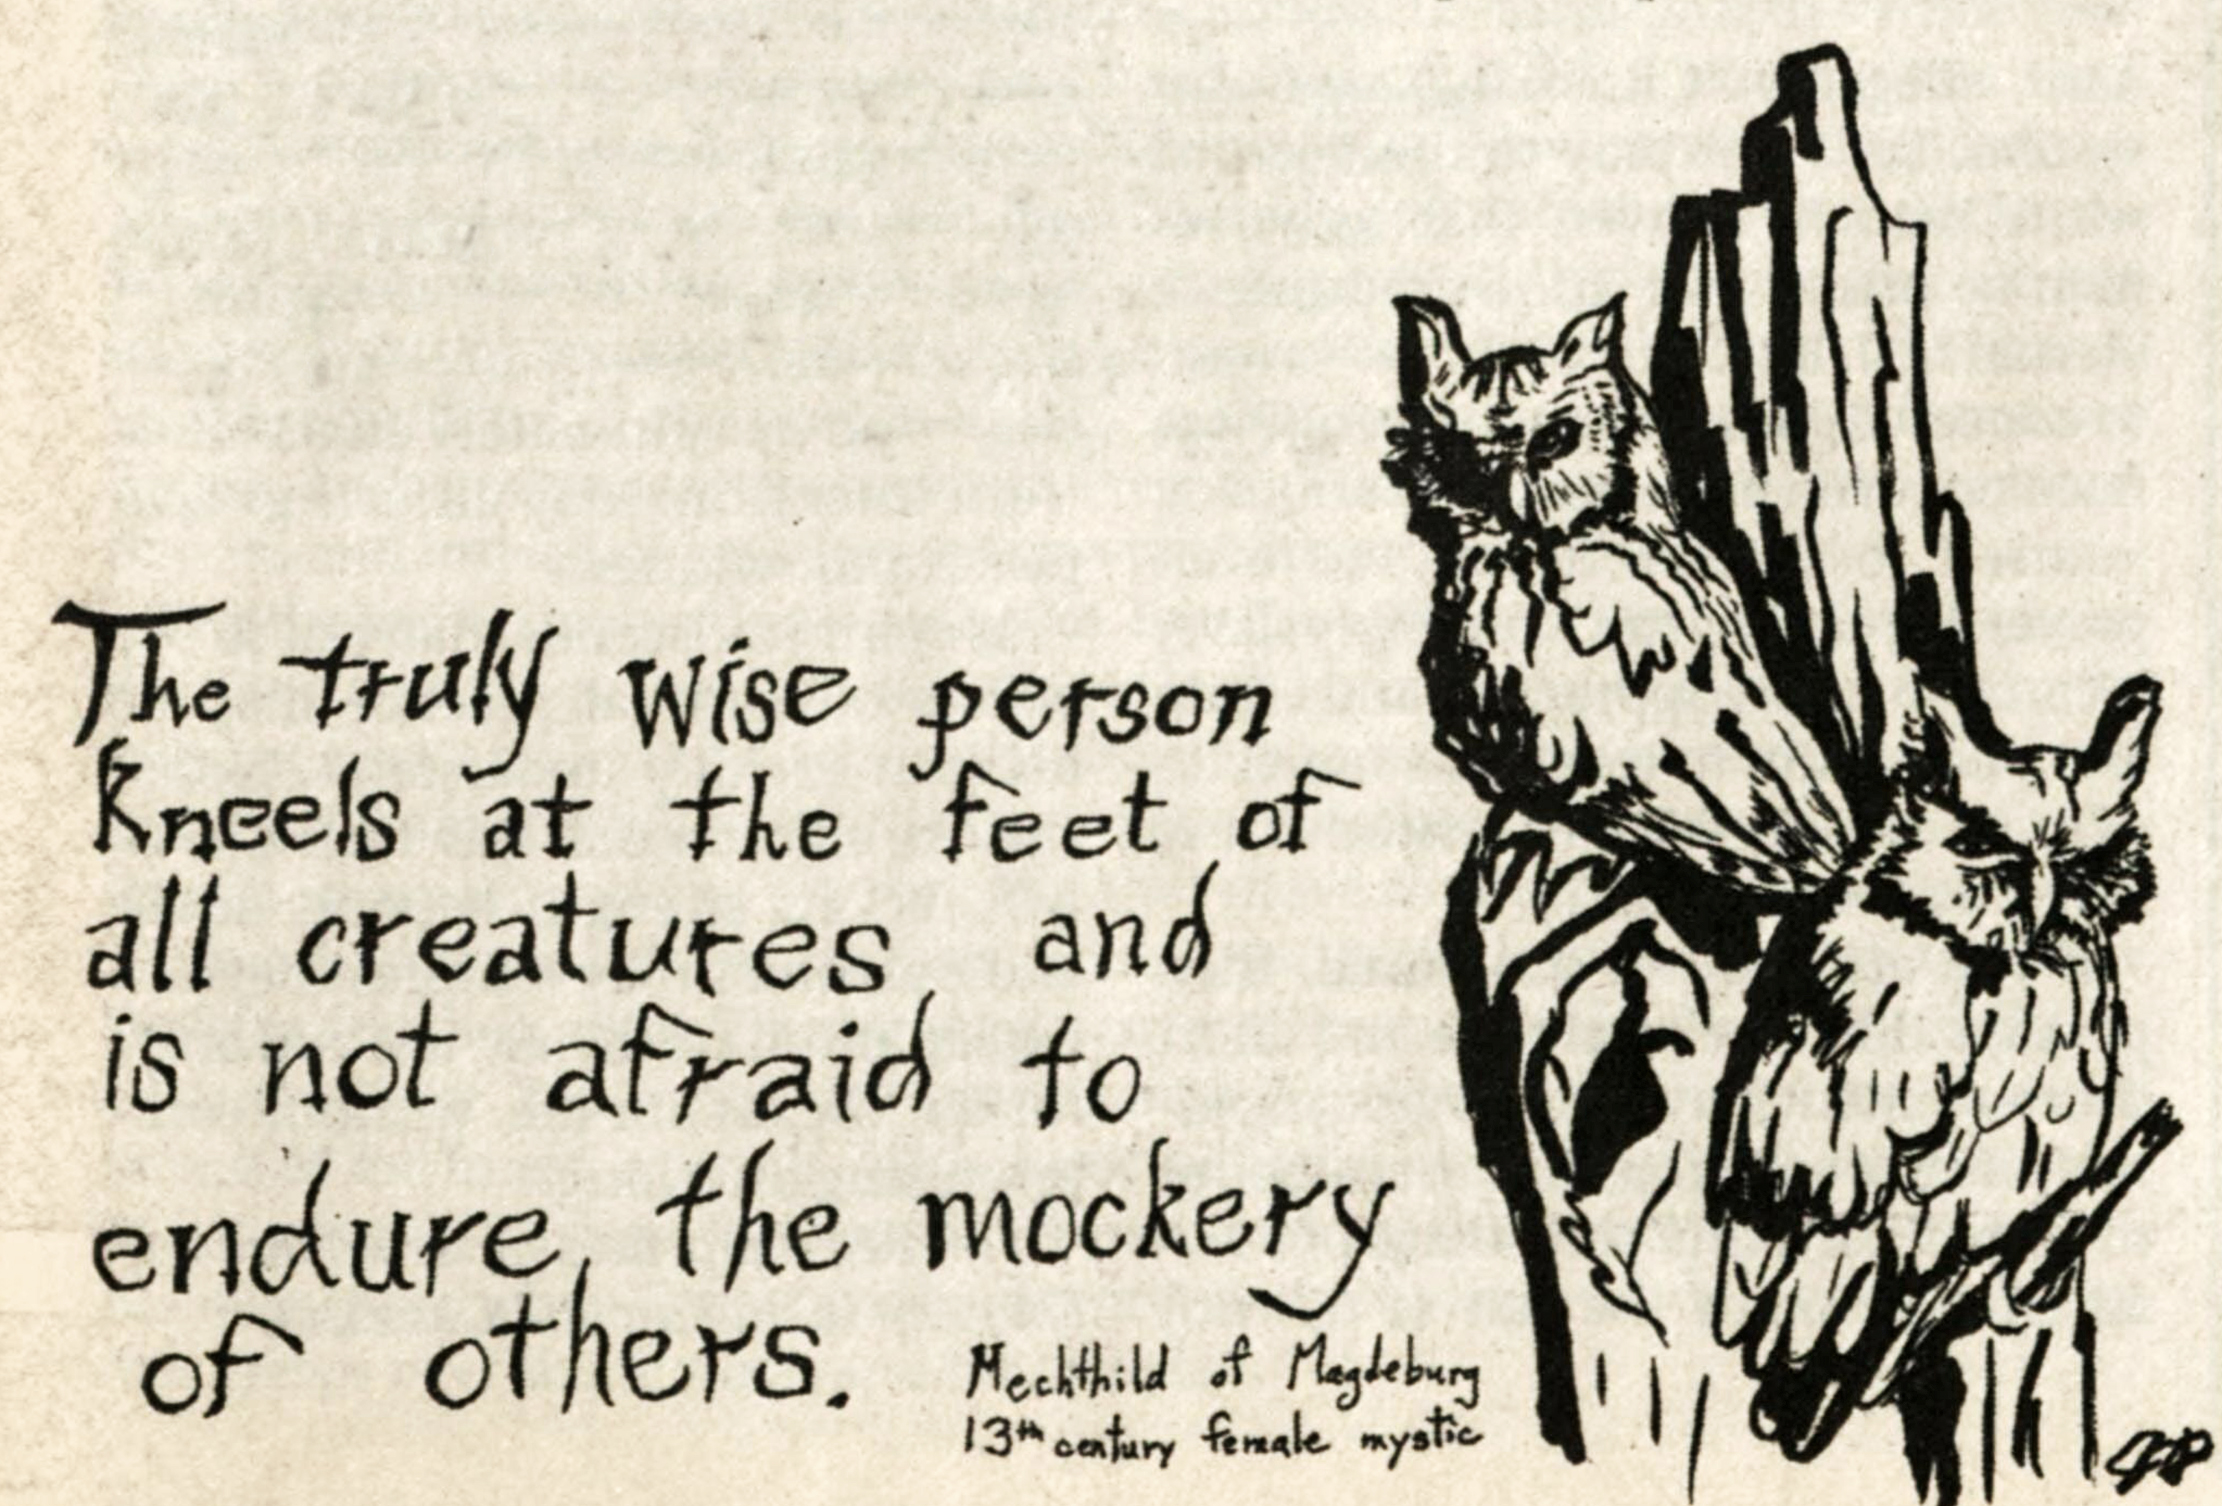 The truly wise person
Kneels at the feet of
all creatures and
is not afraid to
endure the mockery
of others.
Mechthild of Magdeburg
13th century female mystic